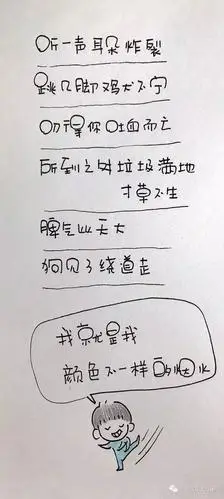 听一声耳朵炸裂
跳几脚鸡犬不宁
叨得你吐血而亡
所到之处垃圾满地
寸草不生
脾气比天大
狗见了绕道走
我就是我
颜色不一样的烟火